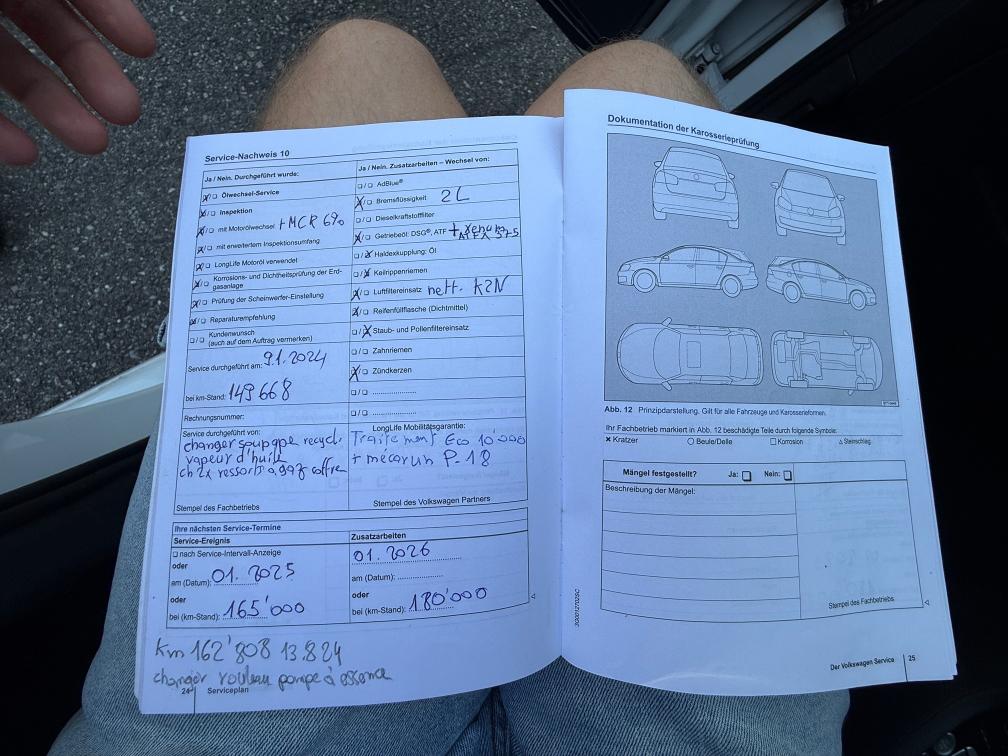 Service-Nachweis 10
Ja / Nein. Durchgeführt wurde:
Ölwechsel-Service
Inspektion
mit Motorölwechsel + MCR 6%
mit erweitertem Inspektionsumfang
LongLife Motoröl verwendet
Korrosions- und Dichtheitsprüfung der Erd-
gasanlage
Prüfung der Scheinwerfer-Einstellung
Reparaturempfehlung
Kundenwunsch
(auch auf dem Auftrag vermerken)
Service durchgeführt am: 9.1.2024
bei km-Stand: 149668
Rechnungsnummer:
Service durchgeführt von:
changer soupape recycl.
vapeur d'huile
ch 2x ressorts à gaz coffre
Stempel des Fachbetriebs
Ja / Nein. Zusatzarbeiten – Wechsel von:
AdBlue®
Bremsflüssigkeit 2L
Dieselkraftstofffilter
Getriebeöl: DSG®, ATF
Haldexkupplung: Öl
Keilrippenriemen
Luftfiltereinsatz nett. K2N
Reifenfüllflasche (Dichtmittel)
Staub- und Pollenfiltereinsatz
Zahnriemen
Zündkerzen
LongLife Mobilitätsgarantie:
Traitement Eco 10'000
+ mécarun P.18
Stempel des Volkswagen Partners
Ihre nächsten Service-Termine
Service-Ereignis
nach Service-Intervall-Anzeige
oder
am (Datum): 01.2025
oder
bei (km-Stand): 165'000
Zusatzarbeiten
01.2026
am (Datum):
oder
bei (km-Stand): 180'000
km 162'808 13.8.24
changer rouleau pompe à essence
24 Serviceplan
Dokumentation der Karosserieprüfung
Abb. 12 Prinzipdarstellung. Gilt für alle Fahrzeuge und Karosserieformen.
Ihr Fachbetrieb markiert in Abb. 12 beschädigte Teile durch folgende Symbole:
Kratzer Beule/Delle Korrosion Steinschlag.
Mängel festgestellt? Ja: Nein:
Beschreibung der Mängel:
Stempel des Fachbetriebs
Der Volkswagen Service 25